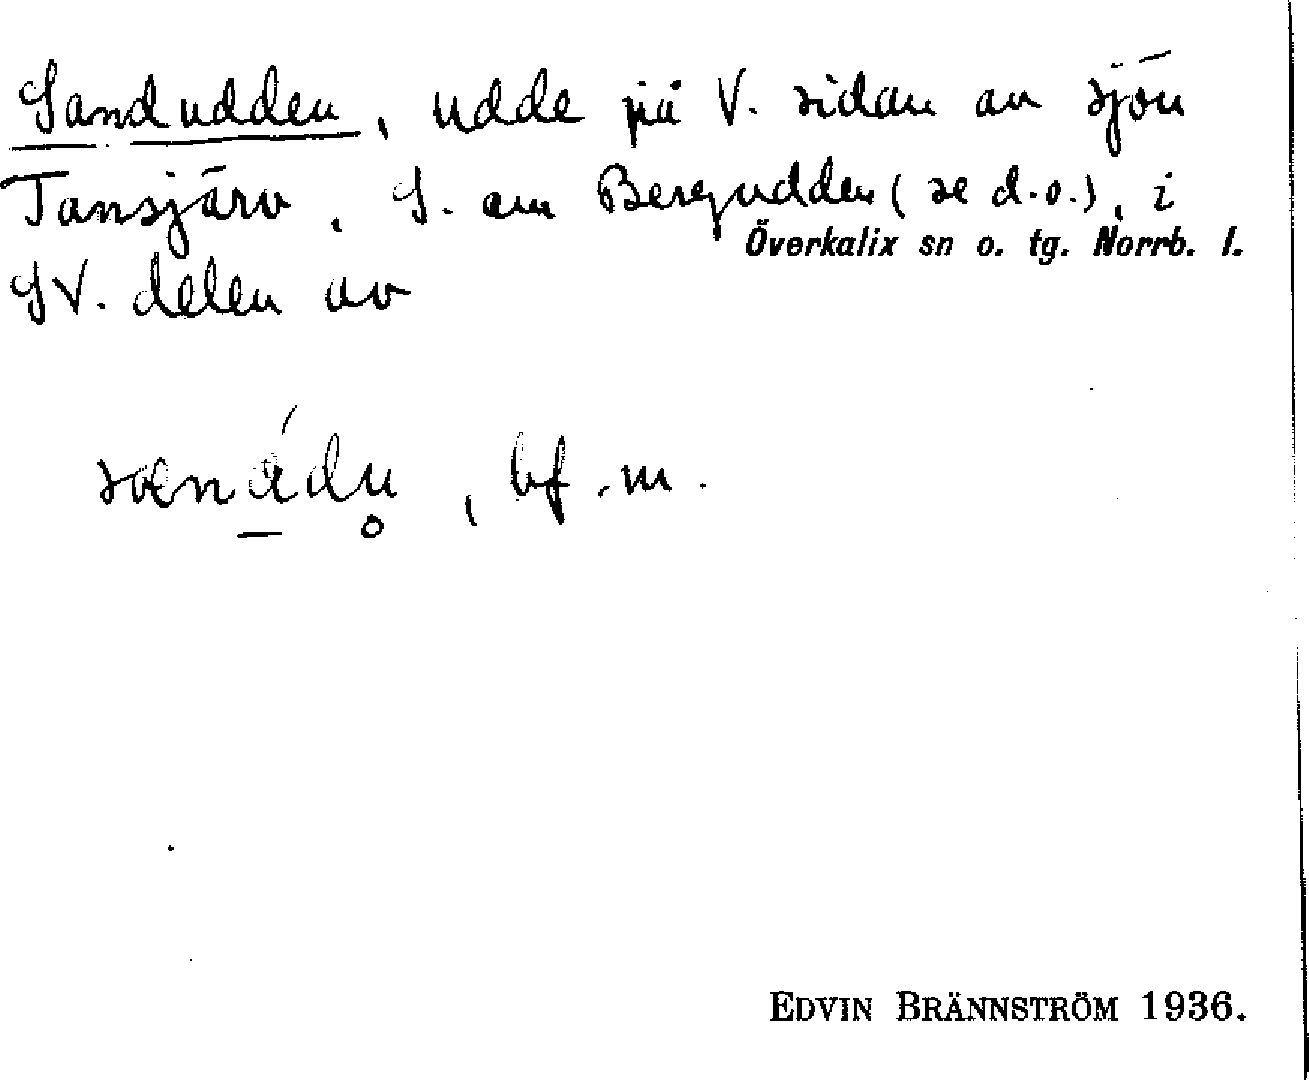 Sandudden, udde på V. sidan av sjön
Tansjärv, S. om Bergudden (se d.o.), i
Överkalix sn o. tg. Norrb. l.
SV. delen av
bf. m.
EDVIN BRÄNNSTRÖM 1936.